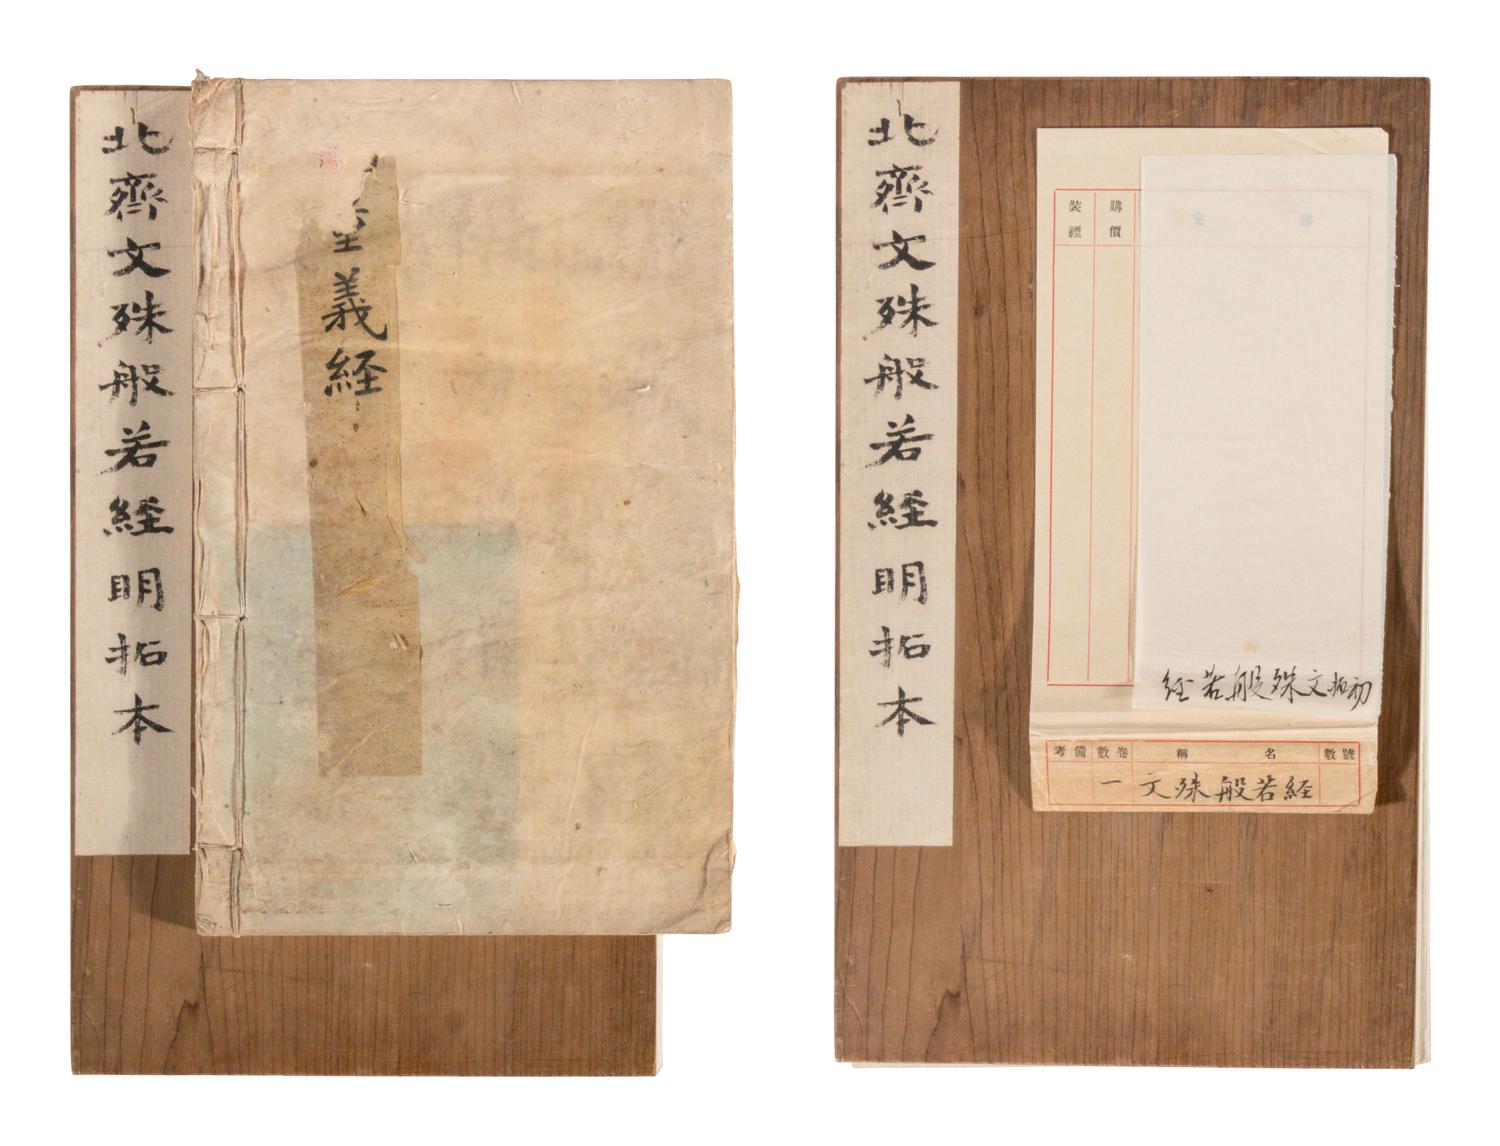 北齊文殊般若經明拓本
義経
北齊文殊般若經明拓本
購價
裝潢
初拓文殊般若经
號數
名稱
卷數
備考
文殊般若経
一